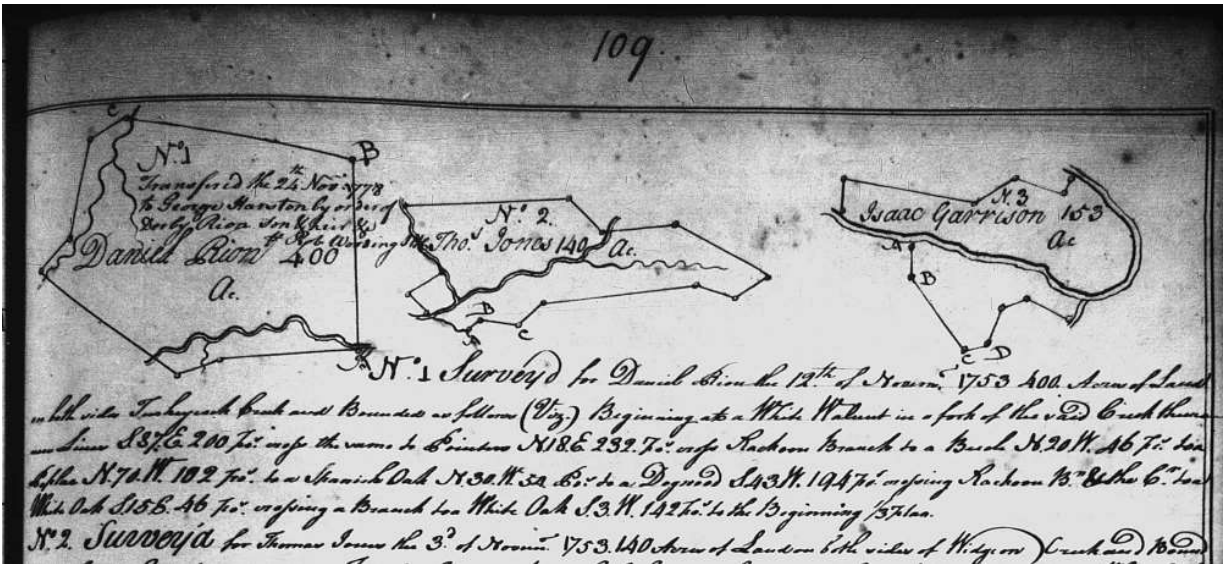 109.
C
B
No. 1
Transfered the 24th Novr. 1778
to George Harston by order of
Rion Son & heir
Daniel Rion 400
Ac.
A
No. 2.
Thos. Jones 140 Ac.
B
A
C
N. 3
Isaac Garrison 153
Ac
A
B
C
D
No. 1 Survey'd for Daniel Rion the 12th of Novem. 1753 400 Acres of Land
on both sides Turkeycock Creek and Bounded as follows (Viz.) Beginning at a White Walnut in a fork of the said Creek thence
Lines S 87 E 200 po. cross the same to Pointers N 18 E 232 po. cross Rackoon Branch to a Beech N. 20 W. 46 po. to a
N. 70. W. 102 po. to a Spanish Oak N. 30. W. 50 Po. to a Dogwood S. 43 W. 194 po crossing Rackoon Br. & the Cr. to a
White Oak S 15 E. 46 po. crossing a Branch to a White Oak S. 3. W. 142 po. to the Beginning
No. 2. Survey'd for Thomas Jones the 3d of Novem. 1753. 140 Acres of Land on both sides of Widgeon Creek and Bound